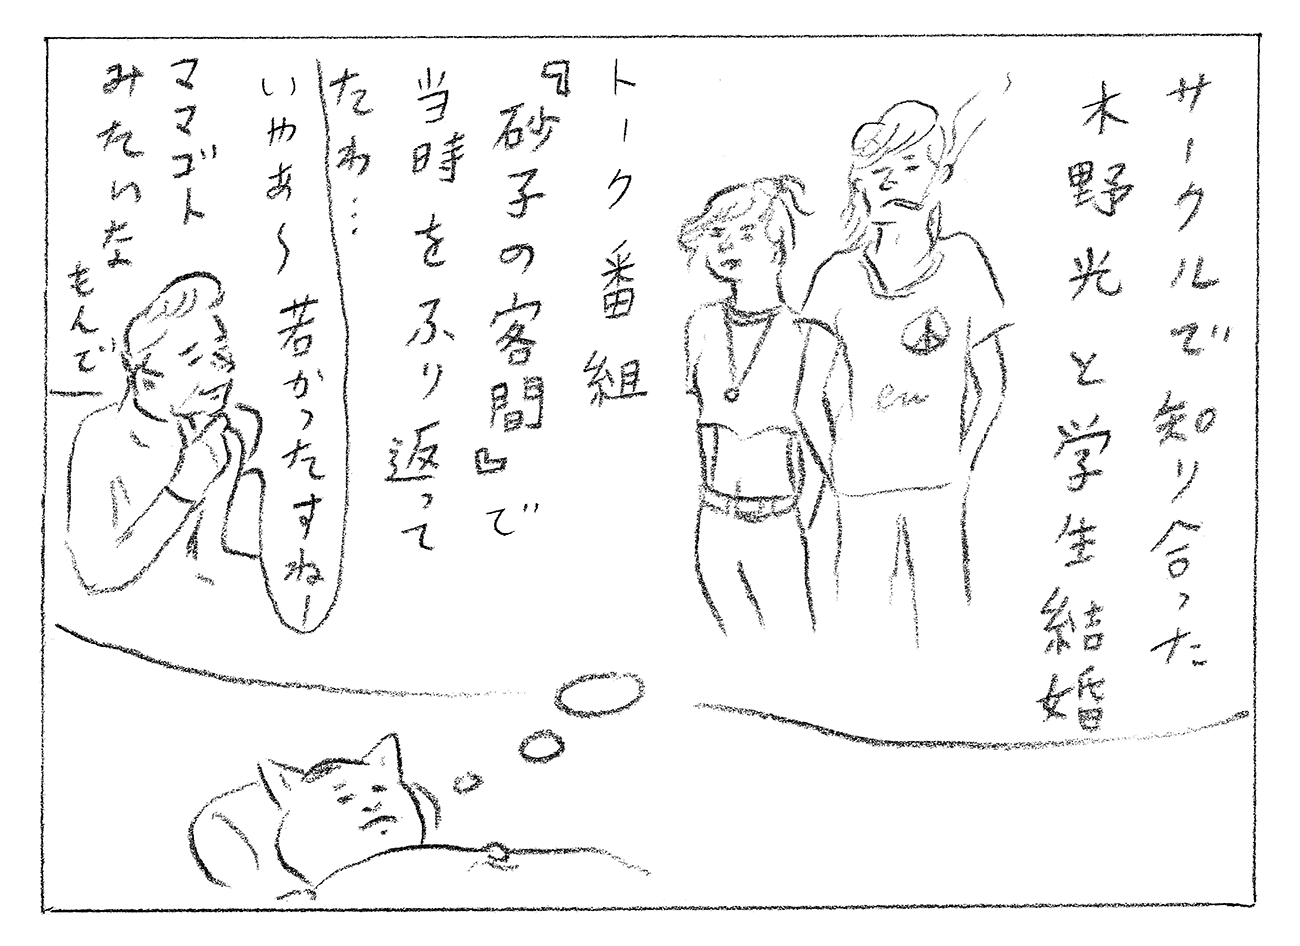 サークルで知り合った
木野光と学生結婚
トーク番組
『砂子の客間』で
当時をふり返って
たわ…
いやあ〜若かったすねー
ママゴト
みたいな
もんで
en